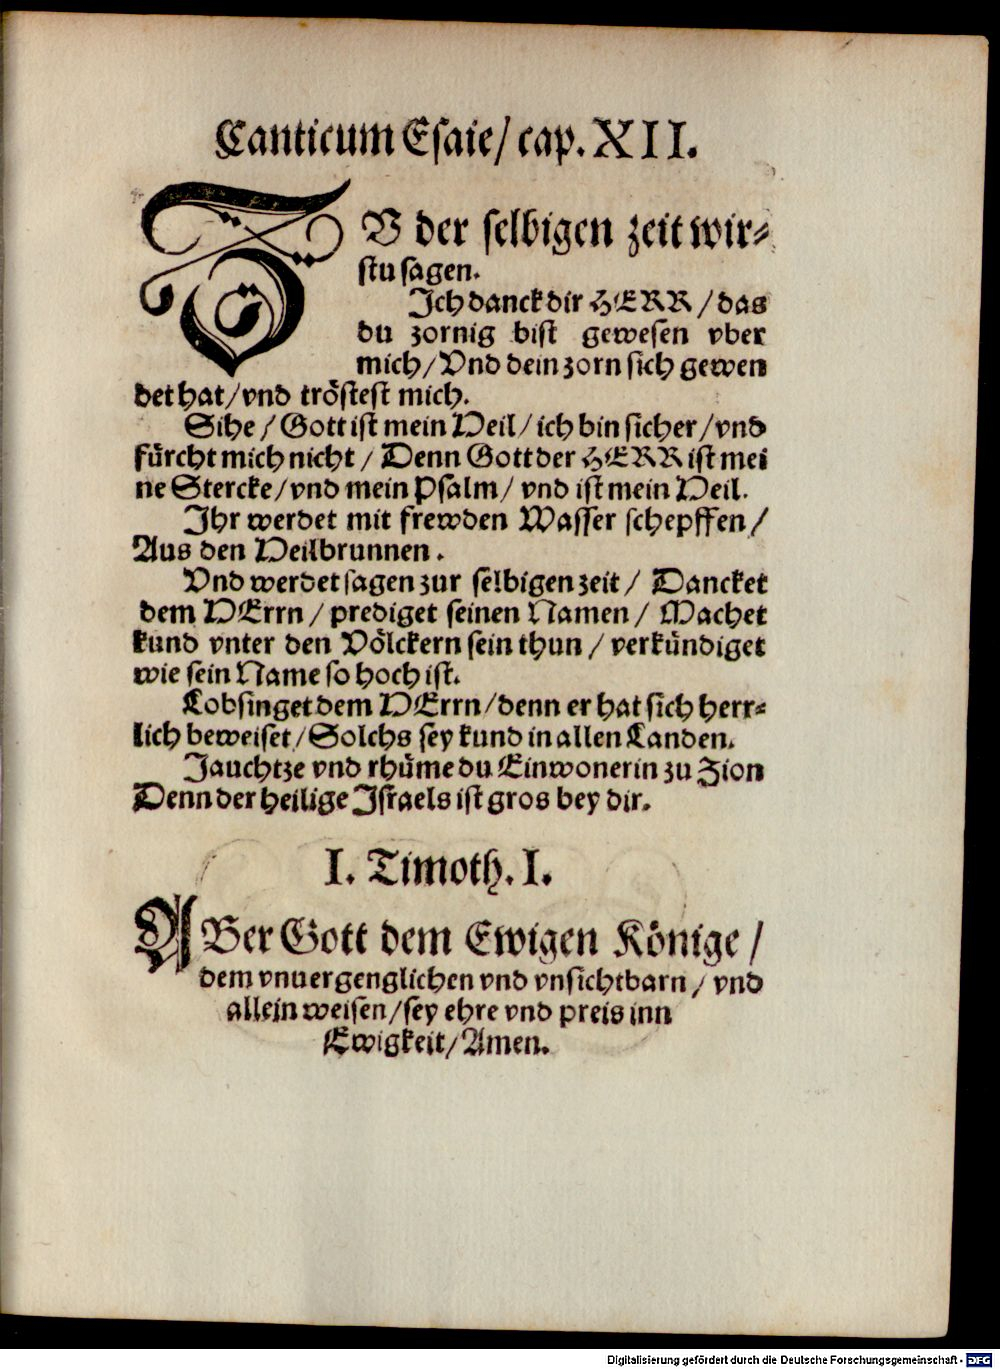 Canticum Esaie/ cap. XII.
ZV der selbigen zeit wir⸗
stu sagen.
Ich danck dir HERR / das
du zornig bist gewesen vber
mich/ Vnd dein zorn sich gewen
det hat/ vnd tröstest mich.
Sihe / Gott ist mein Heil/ ich bin sicher/ vnd
fürcht mich nicht / Denn Gott der HERR ist mei
ne Stercke/ vnd mein Psalm/ vnd ist mein Heil.
Ihr werdet mit frewden Wasser schepffen/
Aus den Heilbrunnen.
Vnd werdet sagen zur selbigen zeit/ Dancket
dem HErrn / prediget seinen Namen / Machet
kund vnter den Völckern sein thun / verkündiget
wie sein Name so hoch ist.
Lobsinget dem HErrn/ denn er hat sich herr⸗
lich beweiset/ Solchs sey kund in allen Landen.
Jauchtze vnd rhüme du Einwonerin zu Zion
Denn der heilige Israels ist gros bey dir.
I. Timoth. I.
ABer Gott dem Ewigen Könige /
dem vnuergenglichen vnd vnsichtbarn / vnd
allein weisen/ sey ehre vnd preis inn
Ewigkeit/ Amen.
Digitalisierung gefördert durch die Deutsche Forschungsgemeinschaft - DFG